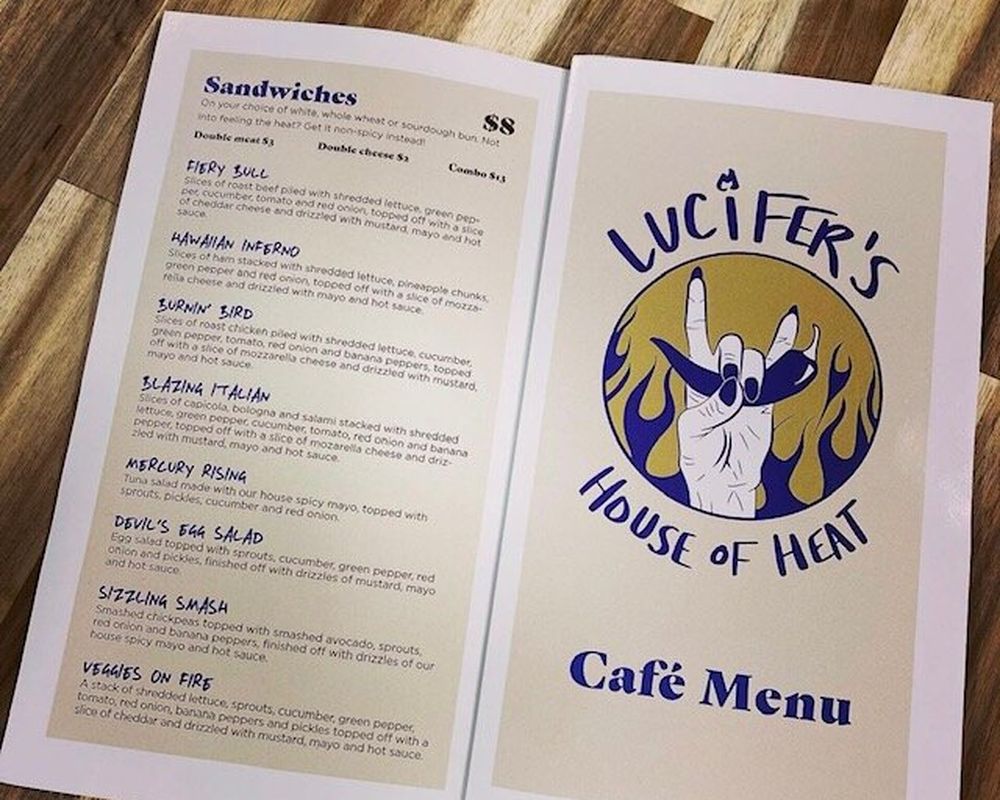 Sandwiches
$8
On your choice of white, whole wheat or sourdough bun. Not
into feeling the heat? Get it non-spicy instead!
Double meat $3 Double cheese $2 Combo $13
FIERY BULL
Slices of roast beef piled with shredded lettuce, green pep-
per, cucumber, tomato and red onion, topped off with a slice
of cheddar cheese and drizzled with mustard, mayo and hot
sauce.
HAWAIIAN INFERNO
Slices of ham stacked with shredded lettuce, pineapple chunks,
green pepper and red onion, topped off with a slice of mozza-
rella cheese and drizzled with mayo and hot sauce.
BURNIN' BIRD
Slices of roast chicken piled with shredded lettuce, cucumber,
green pepper, tomato, red onion and banana peppers, topped
off with a slice of mozzarella cheese and drizzled with mustard,
mayo and hot sauce.
BLAZING ITALIAN
Slices of capicola, bologna and salami stacked with shredded
lettuce, green pepper, cucumber, tomato, red onion and banana
pepper, topped off with a slice of mozarella cheese and driz-
zled with mustard, mayo and hot sauce.
MERCURY RISING
Tuna salad made with our house spicy mayo, topped with
sprouts, pickles, cucumber and red onion.
DEVIL'S EGG SALAD
Egg salad topped with sprouts, cucumber, green pepper, red
onion and pickles, finished off with drizzles of mustard, mayo
and hot sauce.
SIZZLING SMASH
Smashed chickpeas topped with smashed avocado, sprouts,
red onion and banana peppers, finished off with drizzles of our
house spicy mayo and hot sauce.
VEGGIES ON FIRE
A stack of shredded lettuce, sprouts, cucumber, green pepper,
tomato, red onion, banana peppers and pickles topped off with a
slice of cheddar and drizzled with mustard, mayo and hot sauce.
LUCIFER'S
HOUSE OF HEAT
Café Menu